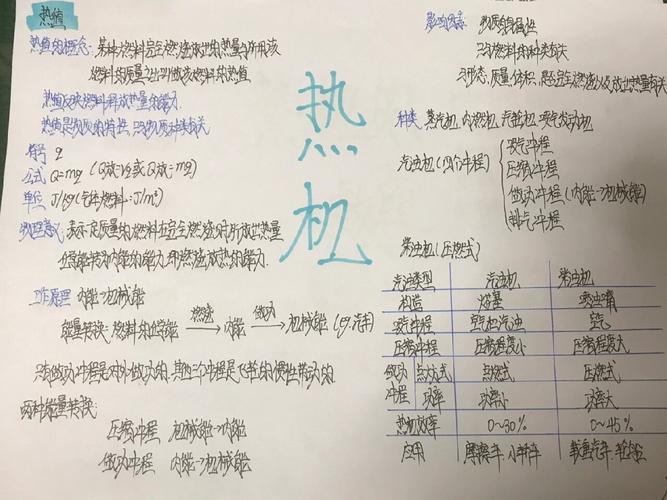 热值
热值的概念: 某种燃料完全燃烧放出的热量与所用该
燃料的质量之比叫做该燃料的热值
热值反映燃料释放热量的能力
热值是物质的特性 只与物质种类有关
符号 q
公式 Q=mq (Q放=Vq或Q放=mq)
单位 J/kg (气体燃料: J/m³)
物理意义: 表示一定质量的燃料在完全燃烧时所放出热量
工作原理 内能→机械能
能量转换: 燃料的化学能 燃烧→ 内能 做功→ 机械能 (eg.汽车)
只有做功冲程是对外做功的, 其他三个冲程是飞轮的惯性带动的
两种能量转换:
压缩冲程 机械能→内能
做功冲程 内能→机械能
热机
影响因素: 物质自身属性
只与燃料的种类有关
与形态、质量、体积、是否完全燃烧以及放出热量有关
种类 蒸汽机, 内燃机, 汽轮机, 喷气发动机
汽油机 (四个冲程)
吸气冲程
压缩冲程
做功冲程 (内能→机械能)
排气冲程
柴油机 (压燃式)
汽油机 柴油机
构造 火花塞 喷油嘴
吸气冲程 空气和汽油 空气
压缩冲程 压缩程度小 压缩程度大
做功冲程 点火方式 点燃式 压燃式
功率 功率小 功率大
热机效率 0~30% 0~45%
应用 摩托车、小轿车 载重汽车、轮船